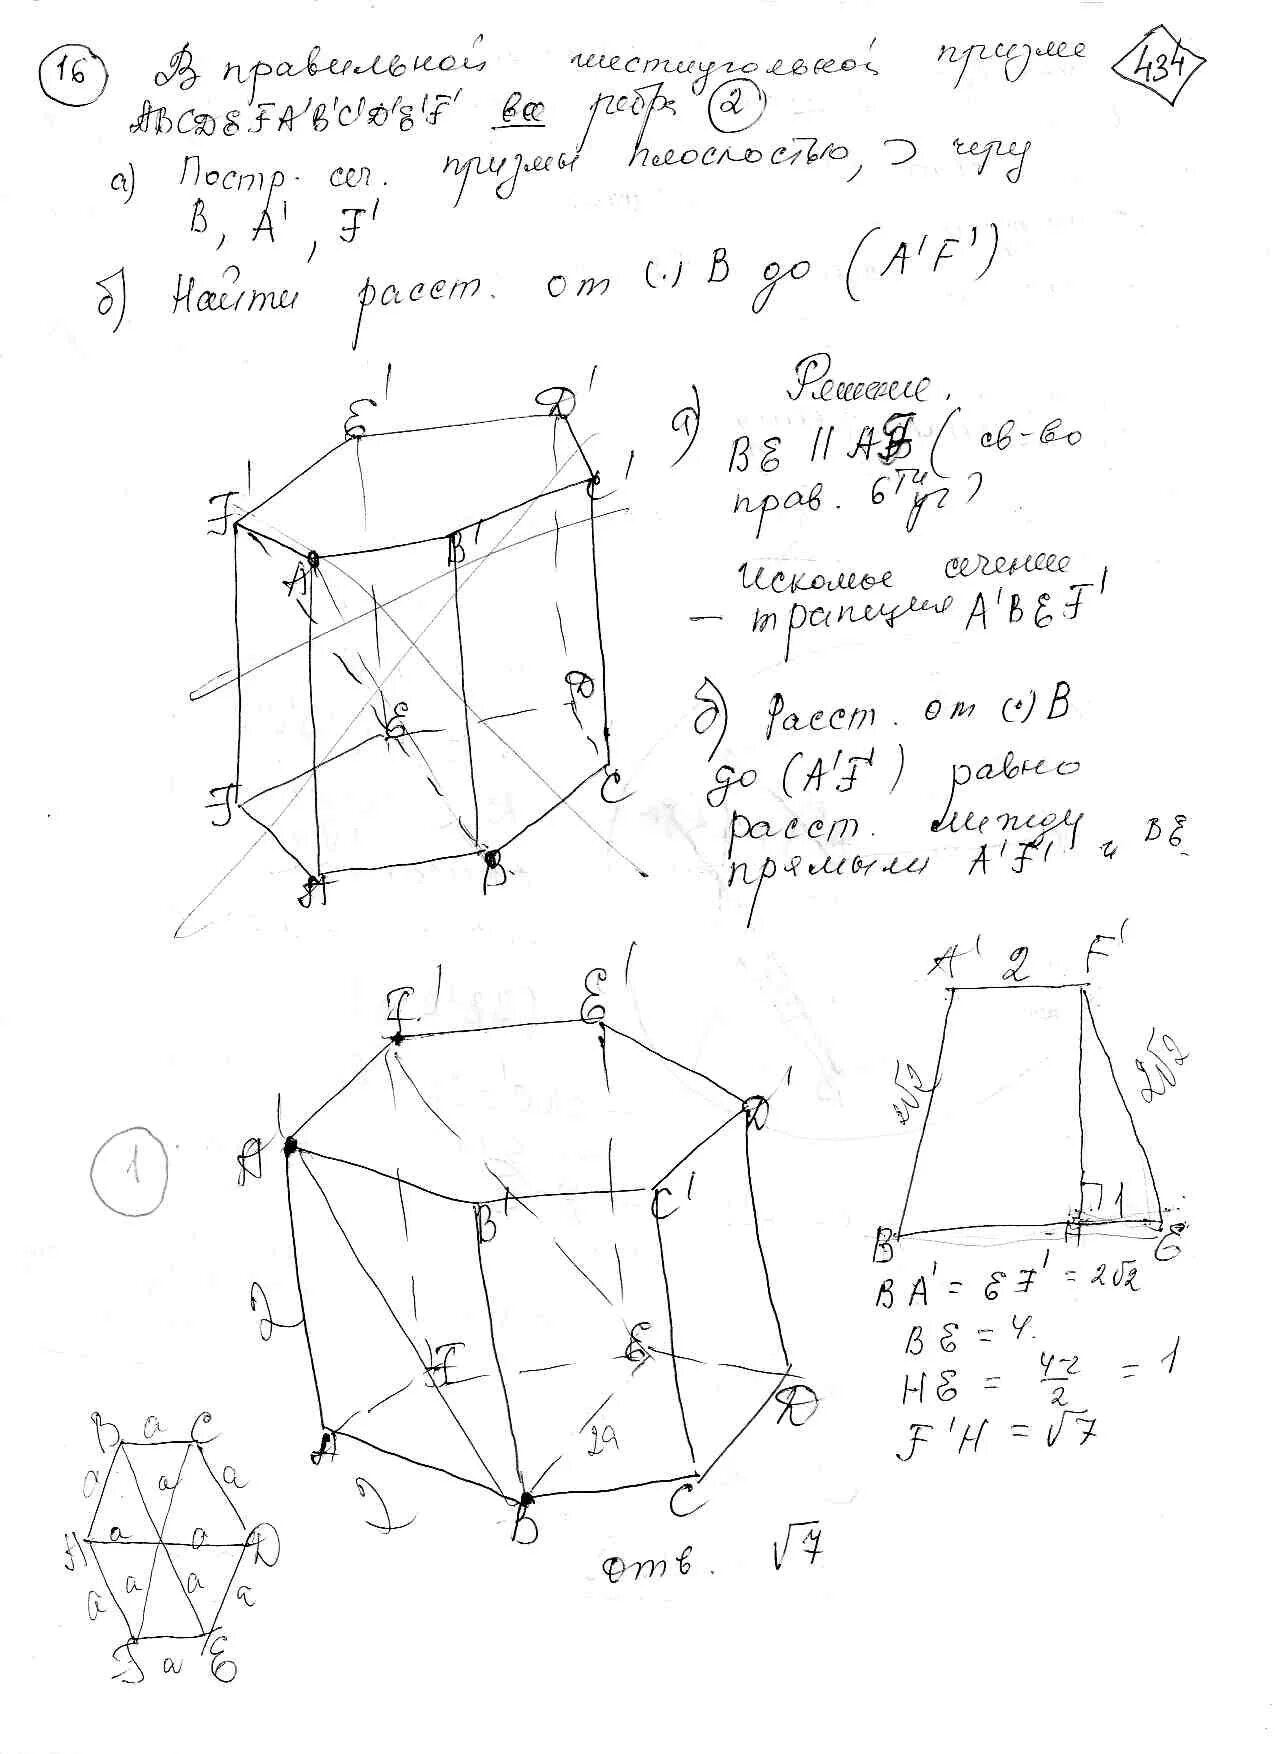 16 В правильной шестиугольной призме 434
ABCDEFA'B'C'D'E'F' все ребра 2
а) Постр. сеч. призмы плоскостью, ⊃ через
B, A', F'
б) Найти расст. от (·) B до (A'F')
Решение.
а) BE || AF ( св-во
прав. 6ти уг)
Искомое сечение
– трапеция A'BEF'
б) Расст. от (·) B
до (A'F') равно
расст. между
прямыми A'F' и BE
E' D'
F' C'
A' B'
E D
F C
A B
A' 2 F'
2√2 2√2
1
B H E
BA' = EF' = 2√2
BE = 4.
HE = 4-2/2 = 1
F'H = √7
1
F' E'
A' D'
B' C'
2
F E
A D
2 2a
B C
B a C
a a a
A a a D
a a a a
F a E
отв. √7